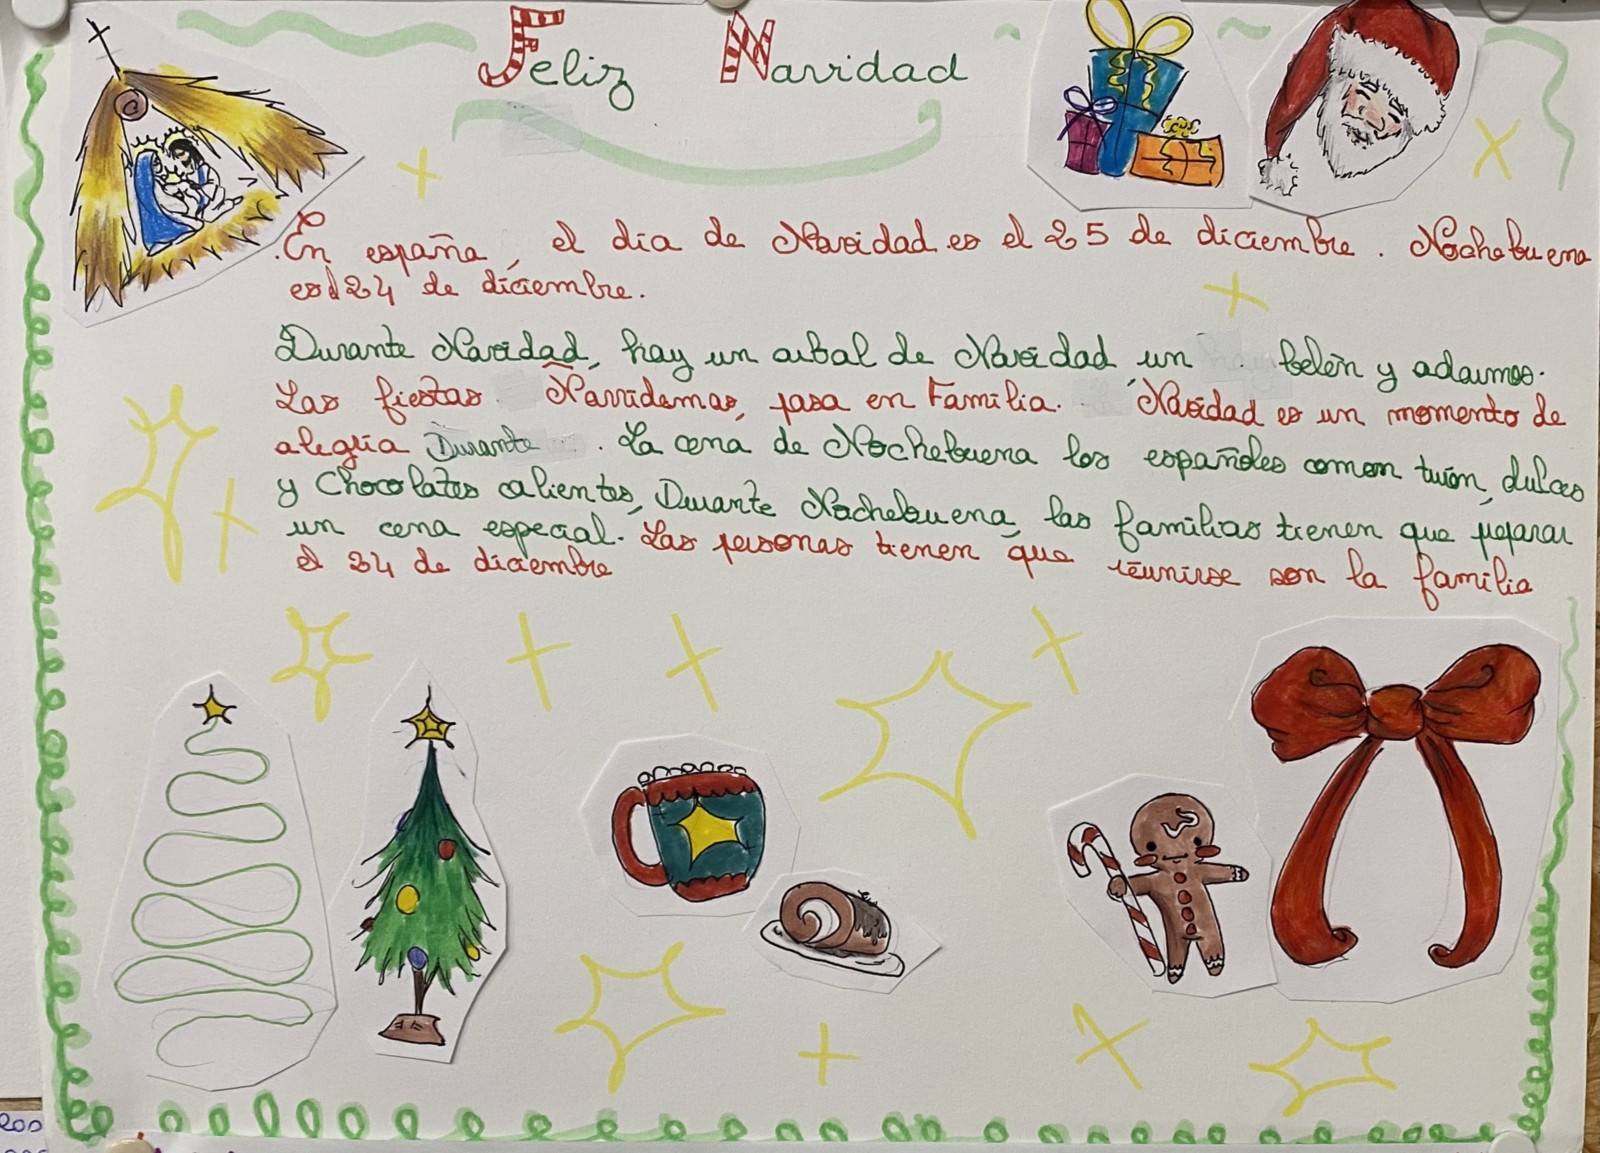 Feliz Navidad
En españa, el día de Navidad es el 25 de diciembre. Nochebuena
es el 24 de diciembre.
Durante Navidad, hay un arbal de Navidad, un belén y adaunos.
Las fiestas Navidemas, pasa en Familia. Navidad es un momento de
alegría Durante. La cena de Nochebuena los españoles comen turón, dulces
y Chocolates calientes, Durante Nochebuena, las familias tienen que peparar
un cena especial. Las personas tienen que réunirse son la familia
el 24 de diciembre